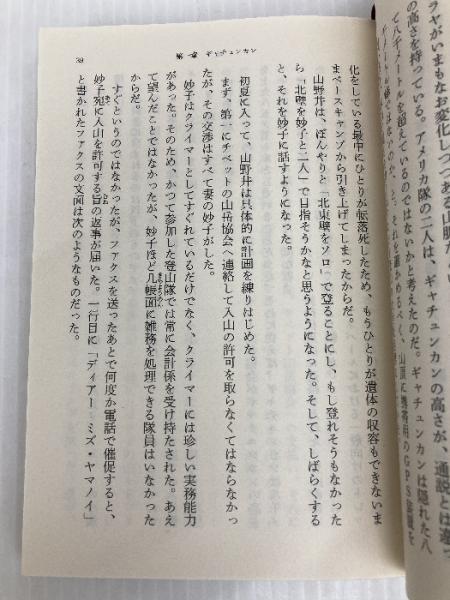 ラヤがいまもなお変化しつつある山脈だ
の高さを持っている。アメリカ隊の二人は、ギャチュンカンの高さが、通説とは違っ
て八千メートルを超えているのではないかと考えたのだ。ギャチュンカンは隠れた八
それを確かめるべく、山頂に携帯用のGPS装置を
化をしている最中にひとりが転落死したため、もうひとりが遺体の収容もできないま
まベースキャンプから引き上げてしまったからだ。
山野井は、ぼんやりと「北東壁をソロ」で登ることにし、もし登れそうもなかった
ら「北壁を妙子と二人」で目指そうかなと思うようになった。そして、しばらくする
と、それを妙子に話すようになった。
初夏に入って、山野井は具体的に計画を練りはじめた。
まず、第一にチベットの山岳協会へ連絡して入山の許可を取らなくてはならなかっ
たが、その交渉はすべて妻の妙子がした。
妙子はクライマーとしてすぐれているだけでなく、クライマーには珍しい実務能力
があった。そのため、かつて参加した登山隊では常に会計係を受け持たされた。あえ
て望んだことではなかったが、妙子ほど几帳面に雑務を処理できる隊員はいなかった
のだ。
すぐというのではなかったが、ファクスを送ったあとで何度か電話で催促すると、
妙子宛に入山を許可する旨の返事が届いた。一行目に「ディアー・ミズ・ヤマノイ」
と書かれたファクスの文面は次のようなものだった。